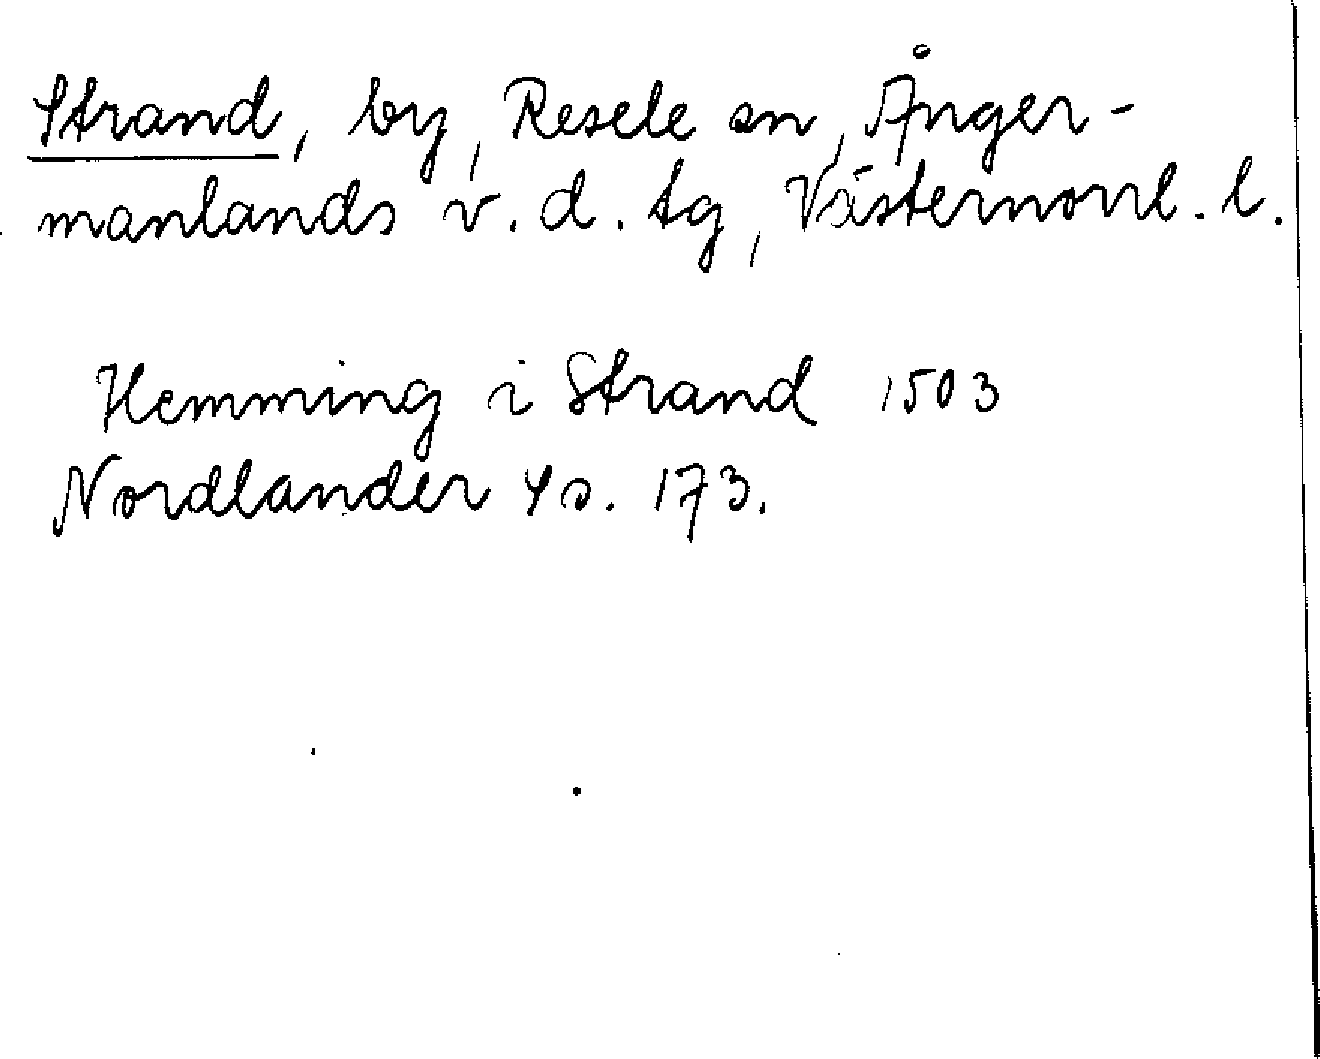 Strand, by, Resele sn, Ånger-
manlands v. d. tg, Västernorrl. l.
Hemming i Strand 1503
Nordlander 4 s. 173.